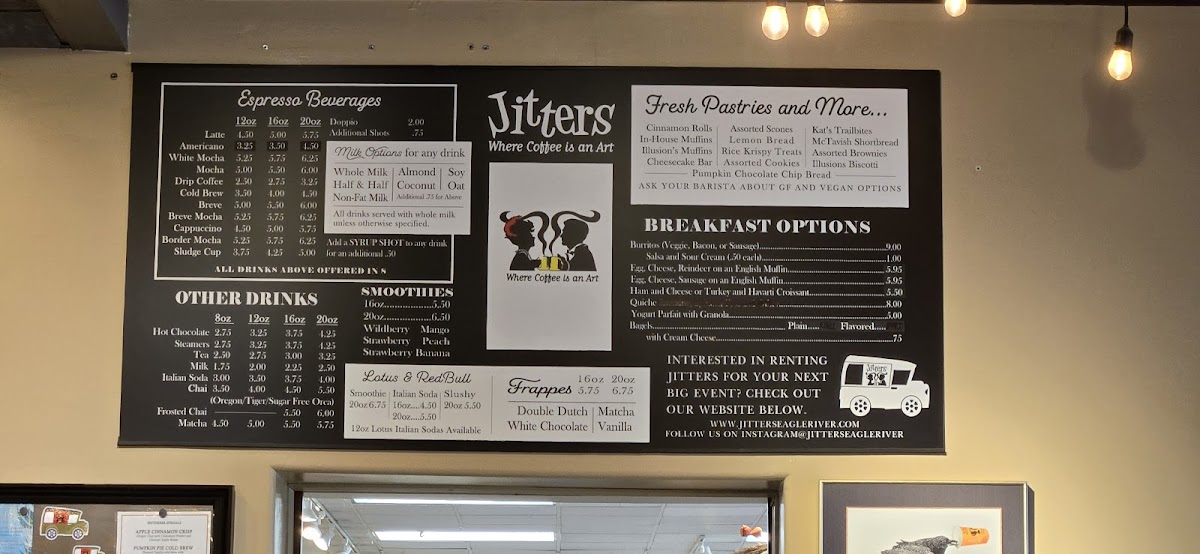 Espresso Beverages
12oz 16oz 20oz
Latte 4.50 5.00 5.75
Americano 3.25 3.50 4.50
White Mocha 5.25 5.75 6.25
Mocha 5.00 5.50 6.00
Drip Coffee 2.50 2.75 3.25
Cold Brew 3.50 4.00 4.50
Breve 5.00 5.50 6.00
Breve Mocha 5.25 5.75 6.25
Cappuccino 4.50 5.00 5.75
Border Mocha 5.25 5.75 6.25
Sludge Cup 3.75 4.25 5.00
Doppio 2.00
Additional Shots .75
Milk Options for any drink
Whole Milk Almond Soy
Half & Half Coconut Oat
Non-Fat Milk Additional .75 for Above
All drinks served with whole milk
unless otherwise specified.
Add a SYRUP SHOT to any drink
for an additional .50
ALL DRINKS ABOVE OFFERED IN 8
OTHER DRINKS
8oz 12oz 16oz 20oz
Hot Chocolate 2.75 3.25 3.75 4.25
Steamers 2.75 3.25 3.75 4.25
Tea 2.50 2.75 3.00 3.25
Milk 1.75 2.00 2.25 2.50
Italian Soda 3.00 3.50 3.75 4.00
Chai 3.50 4.00 4.50 5.50
(Oregon/Tiger/Sugar Free Orea)
Frosted Chai 5.50 6.00
Matcha 4.50 5.00 5.50 5.75
SMOOTHIES
16oz...............5.50
20oz...............6.50
Wildberry Mango
Strawberry Peach
Strawberry Banana
Lotus & RedBull
Smoothie Italian Soda Slushy
20oz 6.75 16oz....4.50 20oz 5.50
20oz....5.50
12oz Lotus Italian Sodas Available
Frappes 16oz 20oz
5.75 6.75
Double Dutch Matcha
White Chocolate Vanilla
Jitters
Where Coffee is an Art
Where Coffee is an Art
Fresh Pastries and More...
Cinnamon Rolls Assorted Scones Kat's Trailbites
In-House Muffins Lemon Bread McTavish Shortbread
Illusion's Muffins Rice Krispy Treats Assorted Brownies
Cheesecake Bar Assorted Cookies Illusions Biscotti
Pumpkin Chocolate Chip Bread
ASK YOUR BARISTA ABOUT GF AND VEGAN OPTIONS
BREAKFAST OPTIONS
Burritos (Veggie, Bacon, or Sausage)....9.00
Salsa and Sour Cream (.50 each)....1.00
Egg, Cheese, Reindeer on an English Muffin....5.95
Egg, Cheese, Sausage on an English Muffin....5.95
Ham and Cheese or Turkey and Havarti Croissant....5.50
Quiche 8.00
Yogurt Parfait with Granola....5.00
Bagels.... Plain.... Flavored....
with Cream Cheese....75
INTERESTED IN RENTING
JITTERS FOR YOUR NEXT
BIG EVENT? CHECK OUT
OUR WEBSITE BELOW.
Jitters
WWW.JITTERSEAGLERIVER.COM
FOLLOW US ON INSTAGRAM@JITTERSEAGLERIVER
APPLE CINNAMON CRISP
PUMPKIN PIE COLD BREW